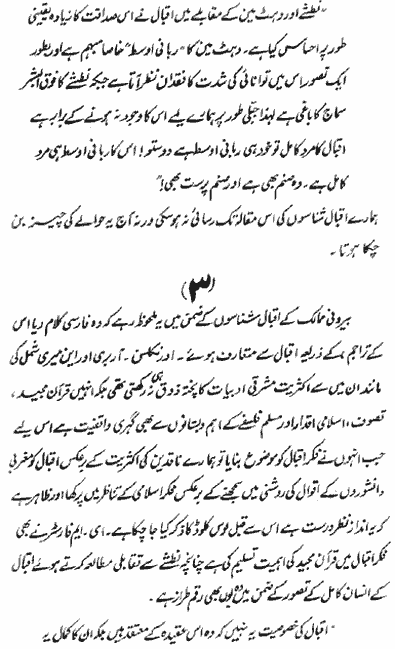 "نطشے اور وہٹ مین کے مقابلے میں اقبال نے اس صداقت کا زیادہ یقینی
طور پر احساس کیا ہے۔ وہٹ مین کا "ربانی اوسط" خاصا مبہم ہے اور بطور
ایک تصور اس میں توانائی کی شدت کا فقدان نظر آتا ہے جبکہ نطشے کا فوق البشر
سماج کا باغی ہے لہٰذا جبلّی طور پر ہمارے لیے اس کا وجود نہ ہونے کے برابر ہے
اقبال کا مردِ کامل تو خود ہی ربانی اوسط ہے دوستو! اس کا ربانی اوسط ہی مرد
کامل ہے۔ وہ صنم بھی ہے اور صنم پرست بھی!"
ہمارے اقبال شناسوں کی اس مقالہ تک رسائی نہ ہو سکی ورنہ آج یہ حوالے کی چیز بن
چکا ہوتا۔
(۳)
بیرونی ممالک کے اقبال شناسوں کے ضمن میں یہ ملحوظ رہے کہ وہ فارسی کلام (یا اس
کے تراجم) کے ذریعہ اقبال سے متعارف ہوئے۔ اور نکلسن۔ آربری اور این میری شمل کی
مانند ان میں سے اکثریت مشرقی ادبیات کا پختہ ذوق ہی نہ رکھتی تھی بلکہ انہیں قرآن مجید،
تصوف، اسلامی اقدار اور مسلم فلسفے کے اہم دبستانوں سے بھی گہری واقفیت ہے اس لیے
جب انہوں نے فکر اقبال کو موضوع بنایا تو ہمارے ناقدین کی اکثریت کے برعکس اقبال کو مغربی
دانشوروں کے اقوال کی روشنی میں سمجھنے کے برعکس فکر اسلامی کے تناظر میں پرکھا اور ظاہر ہے
کہ یہ انداز نظر درست ہے اس سے قبل لوس کلوڈ کا ذکر کیا جا چکا ہے۔ ای۔ ایم فارسٹر نے بھی
فکر اقبال میں قرآن مجید کی اہمیت تسلیم کی ہے چنانچہ نطشے سے تقابلی مطالعہ کرتے ہوئے اقبال
کے انسان کامل کے تصور کے ضمن میں وہ یوں بھی رقم طراز ہے۔
"اقبال کی خصوصیت یہ نہیں کہ وہ اس عقیدہ کے معتقد ہیں بلکہ ان کا کمال یہ